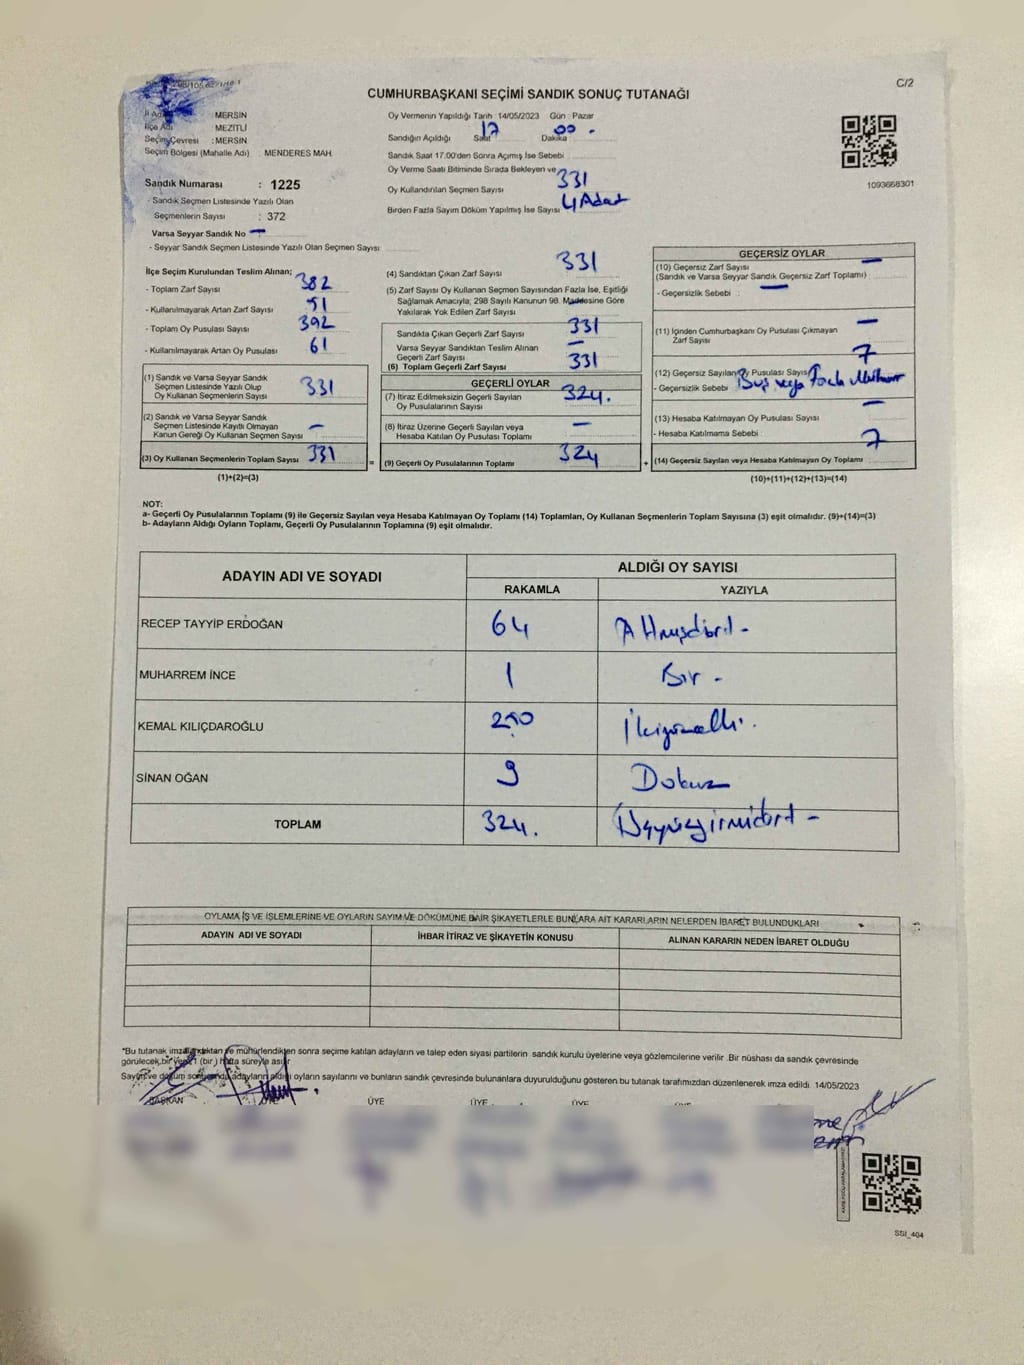 C/2
CUMHURBAŞKANI SEÇİMİ SANDIK SONUÇ TUTANAĞI
İl Adı : MERSİN
İlçe Adı : MEZİTLİ
Seçim Çevresi : MERSİN
Seçim Bölgesi (Mahalle Adı) : MENDERES MAH.
Sandık Numarası : 1225
- Sandık Seçmen Listesinde Yazılı Olan
Seçmenlerin Sayısı : 372
Varsa Seyyar Sandık No —
- Seyyar Sandık Seçmen Listesinde Yazılı Olan Seçmen Sayısı
Oy Vermenin Yapıldığı Tarih 14/05/2023 Gün : Pazar
Sandığın Açıldığı Saat 17 Dakika 00
Sandık Saat 17.00'den Sonra Açımış İse Sebebi
Oy Verme Saati Bitiminde Sırada Bekleyen ve
Oy Kullandırılan Seçmen Sayısı 331
Birden Fazla Sayım Döküm Yapılmış İse Sayısı 4 Adet
1093668301
İlçe Seçim Kurulundan Teslim Alınan;
- Toplam Zarf Sayısı 382
- Kullanılmayarak Artan Zarf Sayısı 51
- Toplam Oy Pusulası Sayısı 392
- Kullanılmayarak Artan Oy Pusulası 61
(1) Sandık ve Varsa Seyyar Sandık
Seçmen Listesinde Yazılı Olup
Oy Kullanan Seçmenlerin Sayısı 331
(2) Sandık ve Varsa Seyyar Sandık
Seçmen Listesinde Kayıtlı Olmayan
Kanun Gereği Oy Kullanan Seçmen Sayısı —
(3) Oy Kullanan Seçmenlerin Toplam Sayısı 331 =
(1)+(2)=(3)
(4) Sandıktan Çıkan Zarf Sayısı 331
(5) Zarf Sayısı Oy Kullanan Seçmen Sayısından Fazla İse, Eşitliği
Sağlamak Amacıyla, 298 Sayılı Kanunun 98. Maddesine Göre
Yakılarak Yok Edilen Zarf Sayısı —
Sandıkta Çıkan Geçerli Zarf Sayısı 331
Varsa Seyyar Sandıktan Teslim Alınan
Geçerli Zarf Sayısı —
(6) Toplam Geçerli Zarf Sayısı 331
GEÇERLİ OYLAR
(7) İtiraz Edilmeksizin Geçerli Sayılan
Oy Pusulalarının Sayısı 324.
(8) İtiraz Üzerine Geçerli Sayılan veya
Hesaba Katılan Oy Pusulası Toplamı —
(9) Geçerli Oy Pusulalarının Toplamı 324 +
GEÇERSİZ OYLAR
(10) Geçersiz Zarf Sayısı —
(Sandık ve Varsa Seyyar Sandık Geçersiz Zarf Toplamı)
- Geçersizlik Sebebi : —
(11) İçinden Cumhurbaşkanı Oy Pusulası Çıkmayan
Zarf Sayısı —
(12) Geçersiz Sayılan Oy Pusulası Sayısı 7
- Geçersizlik Sebebi Boş veya Fazla Mühür
(13) Hesaba Katılmayan Oy Pusulası Sayısı —
- Hesaba Katılmama Sebebi
(14) Geçersiz Sayılan veya Hesaba Katılmayan Oy Toplamı 7
(10)+(11)+(12)+(13)=(14)
NOT:
a- Geçerli Oy Pusulalarının Toplamı (9) ile Geçersiz Sayılan veya Hesaba Katılmayan Oy Toplamı (14) Toplamları, Oy Kullanan Seçmenlerin Toplam Sayısına (3) eşit olmalıdır. (9)+(14)=(3)
b- Adayların Aldığı Oyların Toplamı, Geçerli Oy Pusulalarının Toplamına (9) eşit olmalıdır.
ADAYIN ADI VE SOYADI ALDIĞI OY SAYISI
RAKAMLA YAZIYLA
RECEP TAYYİP ERDOĞAN 64 Altmışdört -
MUHARREM İNCE 1 Bir -
KEMAL KILIÇDAROĞLU 250 İkiyüzelli.
SİNAN OĞAN 9 Dokuz
TOPLAM 324. Üçyüzyirmidört -
OYLAMA İŞ VE İŞLEMLERİNE VE OYLARIN SAYIM VE DÖKÜMÜNE DAİR ŞİKAYETLERLE BUNLARA AİT KARARLARIN NELERDEN İBARET BULUNDUKLARI
ADAYIN ADI VE SOYADI İHBAR İTİRAZ VE ŞİKAYETİN KONUSU ALINAN KARARIN NEDEN İBARET OLDUĞU
*Bu tutanak imzalandıktan ve mühürlendikten sonra seçime katılan adayların ve talep eden siyasi partilerin sandık kurulu üyelerine veya gözlemcilerine verilir. Bir nüshası da sandık çevresinde
görülecek bir yere 1 (bir) hafta süreyle asılır
Sayım ve döküm sonucunda adayların aldığı oyların sayılarını ve bunların sandık çevresinde bulunanlara duyurulduğunu gösteren bu tutanak tarafımızdan düzenlenerek imza edildi. 14/05/2023
BAŞKAN ÜYE ÜYE ÜYE ÜYE ÜYE
SSI_404